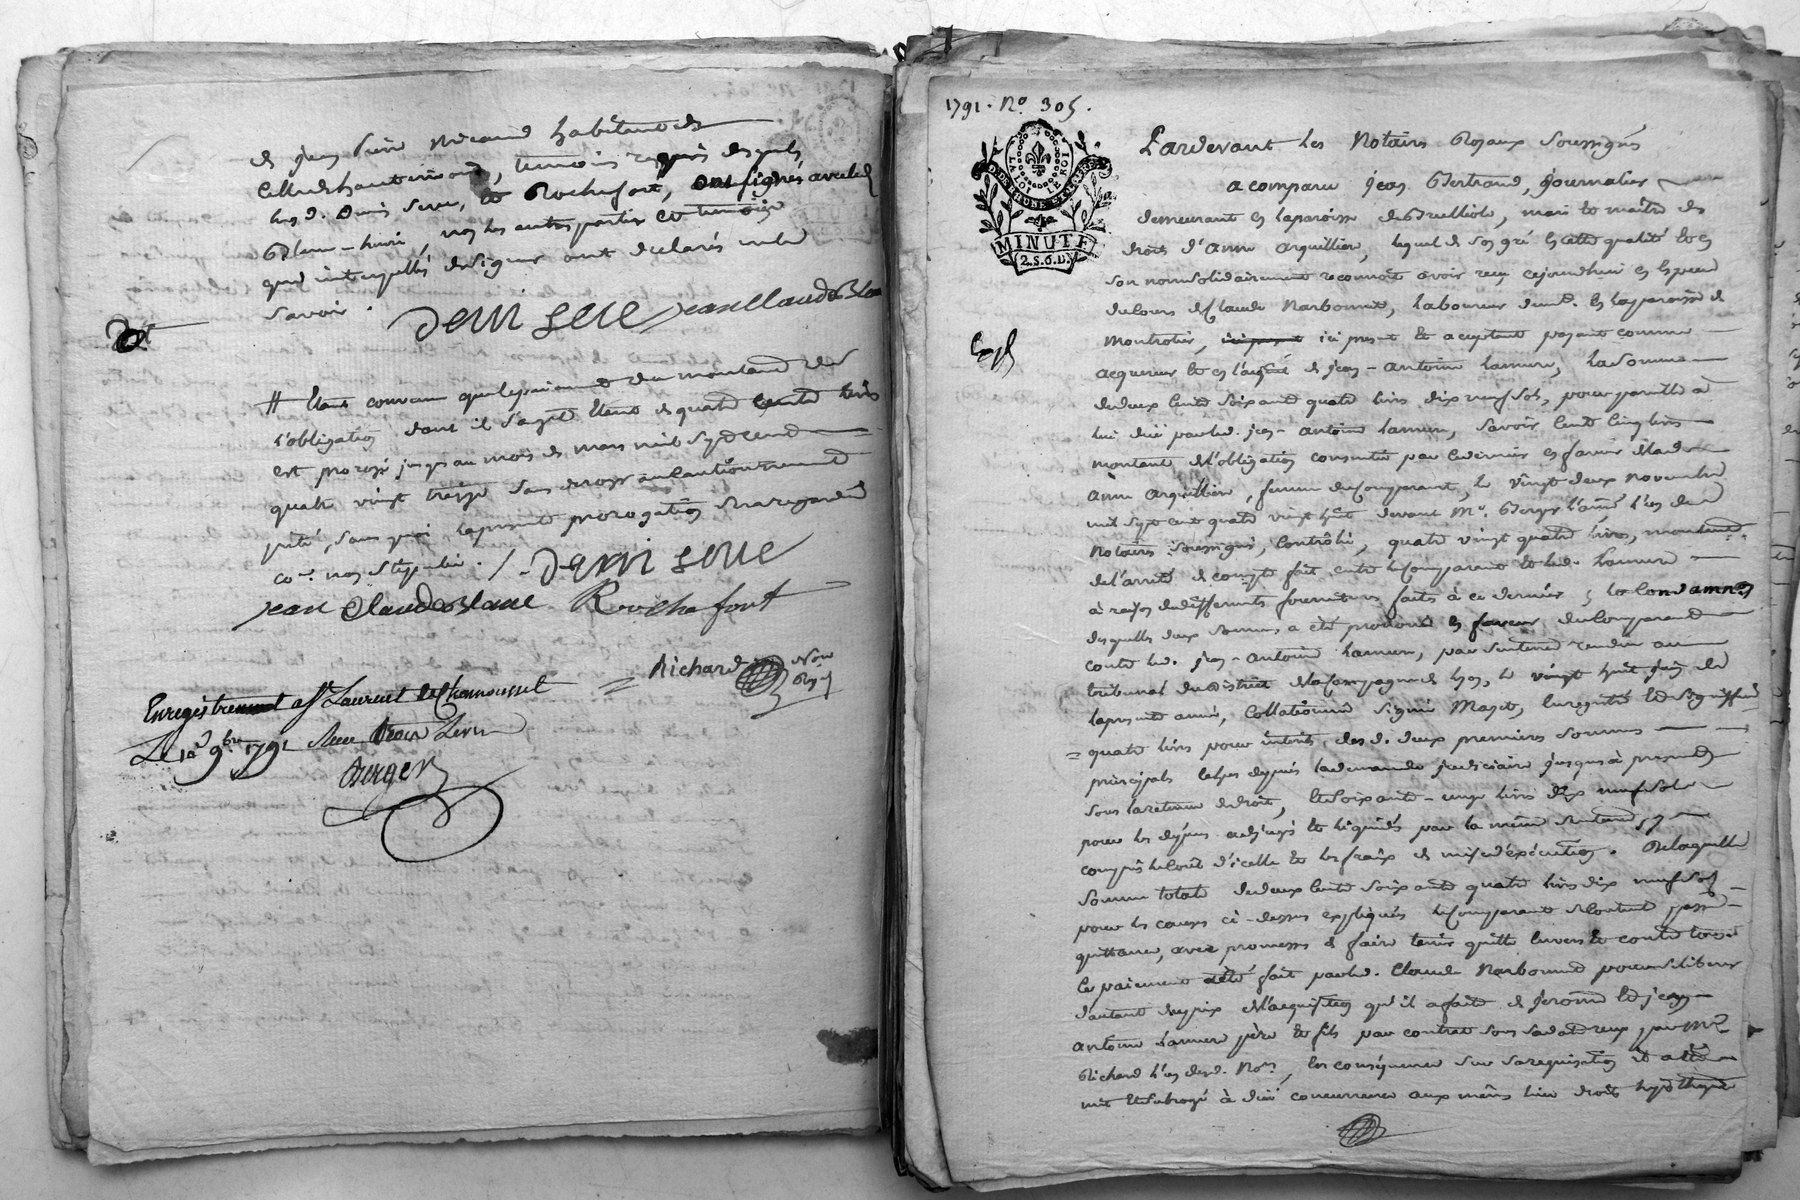 de jean pierre Micaud habitant de
temoins requis desquels
Denis Serre, et Rochefort, ont signés avec led
Blanc - huri, non les autres parties et temoins
qui interpellés de signer ont declarés ne le
savoir.
Deni sere jean Claude Blan
# Etant convenu que le paiement du montant de
l'obligation dont il s'agit étant de quatre cents livres
est prorogé jusques au mois de mars mil sept cent
quatre vingt treize sans deroger au cautionnement
prété, sans quoi la presente prorogation sera regardée
co.e non stipulée. /. Deni sere
jean Claude Blanc Rochefort
Richard Not Royal
Enregistrement a St Laurent de Chamousset
Le 10 9bre 1791 Recu trois Livres
Berger
1791. No 305.
LA LOI LE ROI
MINUTE
2.S.6.D.
Expé
Pardevant les Notaires Royaux soussignés
a comparu jean Bertrand, journalier
demeurant en la paroisse de Brulliole, mari et maitre des
droits d'anne arquillier, lequel de son gré en cette qualité et en
son nom solidairement reconnoit avoir reçu cejourdhui en especes
de cours de Claude Narbonnet, laboureur demt. en la paroisse de
Montrotier, ici present et acceptant payant comme
acquereur et en l'acquit de jean - antoine lameure, la somme
de deux cents soixante quatre livres dix neuf sols, pour pareille a
lui due par led. jean - antoine lameure, savoir cent cinq livres
montant de l'obligation consentie par ce dernier en faveur de lad.
anne arquillier, femme du comparant, le vingt deux novembre
mil sept cent quatre vingt huit devant Me. l'ainé l'un des
Notaires soussignés, controlée, quatre vingt quatre livres, montant
de l'arreté de compte fait entre le comparant et led. lameure
à raison de differentes fournitures faites à ce dernier, et la condamnon
desquelles deux sommes a été prononcée en faveur du comparant
contre led. jean - antoine lameure, par sentence rendue au
tribunal du district de la Campagne de lyon, le vingt huit juin de
la presente année, collationnée signée enregistrée et signiffiée
quatre livres pour interets desd. deux premieres sommes
principales echus depuis la demande judiciaire jusques à present
sous la retenue de droit, et soixante - onze livres dix neuf sols
pour les depens adjugés et liquidés par la même sentence y
compris le cout d'icelle et les fraix de mise d'éxécution. De laquelle
somme totale de deux cents soixante quatre livres dix neuf sols
pour les causes ci-dessus expliquées le comparant se contente passe
quittance, avec promesse de faire tenir quitte envers et contre tous
le paiement été fait par led. Claude Narbonnet pour se liberer
d'autant du prix de l'acquisition qu'il a faite de jerome et jean
antoine lameure père et fils par contrat sous sa datte reçu par Me
Richard l'un desd. Nores, en conséquence sur sa requisition il a été
mis et subrogé à due concurrence aux mêmes lieu droits hypotheque